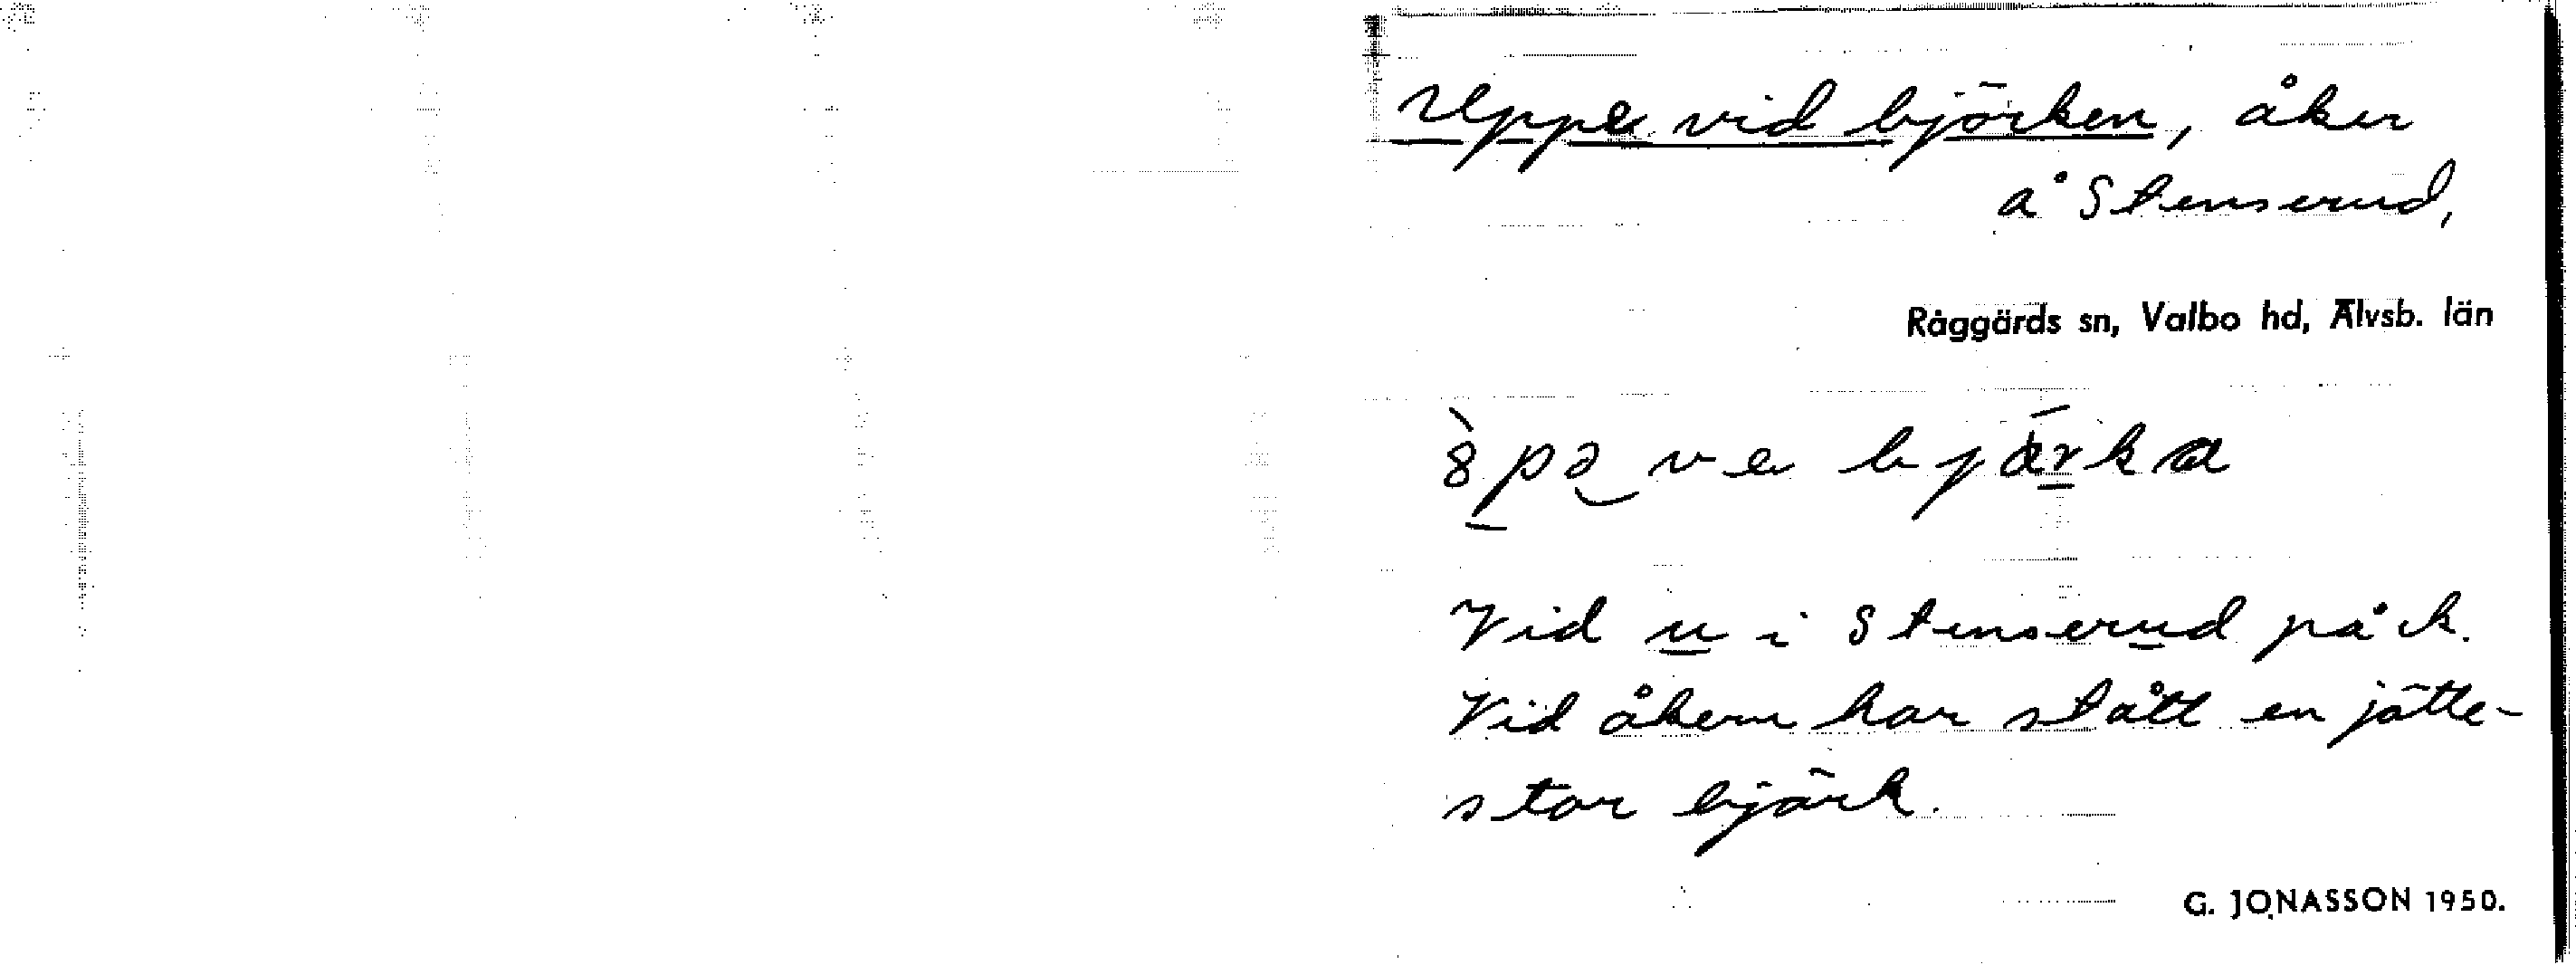 Uppe vid björken, åker
å Stenserud,
Råggärds sn, Valbo hd, Älvsb. län
8̀pə ve bjárka
Vid u i Stenserud på ek.
Vid åkern har stått en jätte-
stor björk.
G. JONASSON 1950.